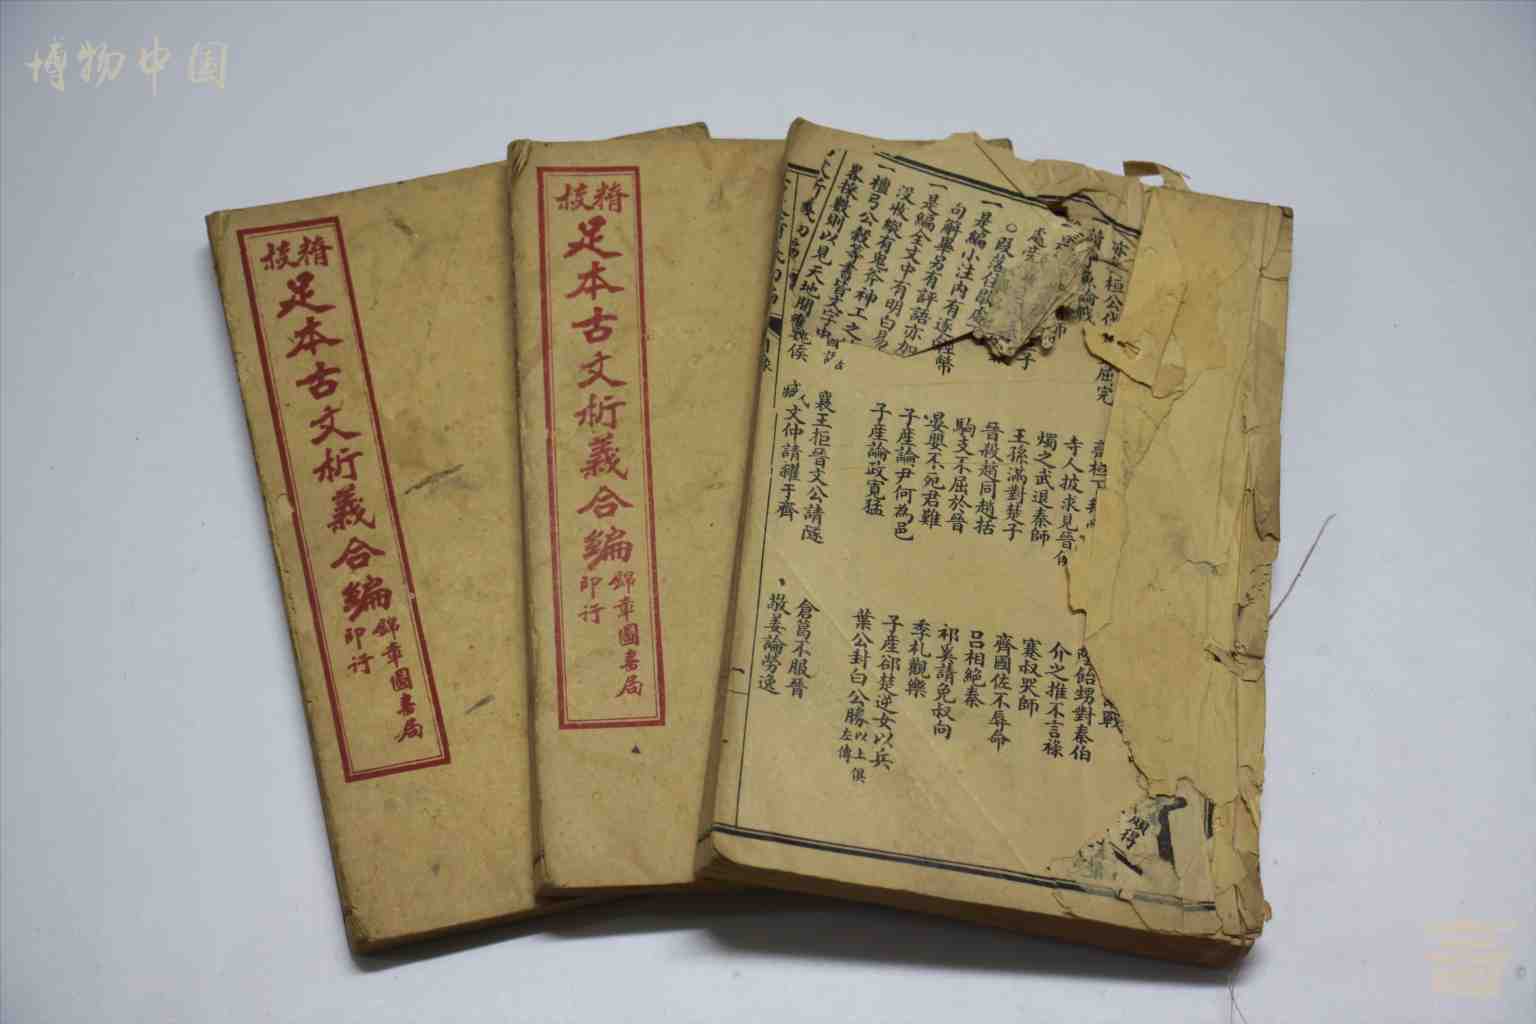 博物中国
精校
足本古文析義合編
錦章圖書局
印行
精校
足本古文析義合編
錦章圖書局
印行
寺人披求見晉
燭之武退秦師
王孫滿對楚子
晉殺趙同趙括
駒支不屈於晉
晏嬰不死君難
子產論尹何為邑
子產論政寬猛
襄王拒晉文公請隧
臧文仲請糴于齊
陰飴甥對秦伯
介之推不言祿
蹇叔哭師
齊國佐不辱命
呂相絕秦
祁奚請免叔向
季札觀樂
子產卻楚逆女以兵
葉公封白公勝以上俱左傳
倉葛不服晉
敬姜論勞逸
一是編小注內有逐
句解無另有評語亦加
一是編全文中有明白易
沒收縱有鬼斧神工之
一檀弓公穀等書皆文字中
畧採數則以見天地間